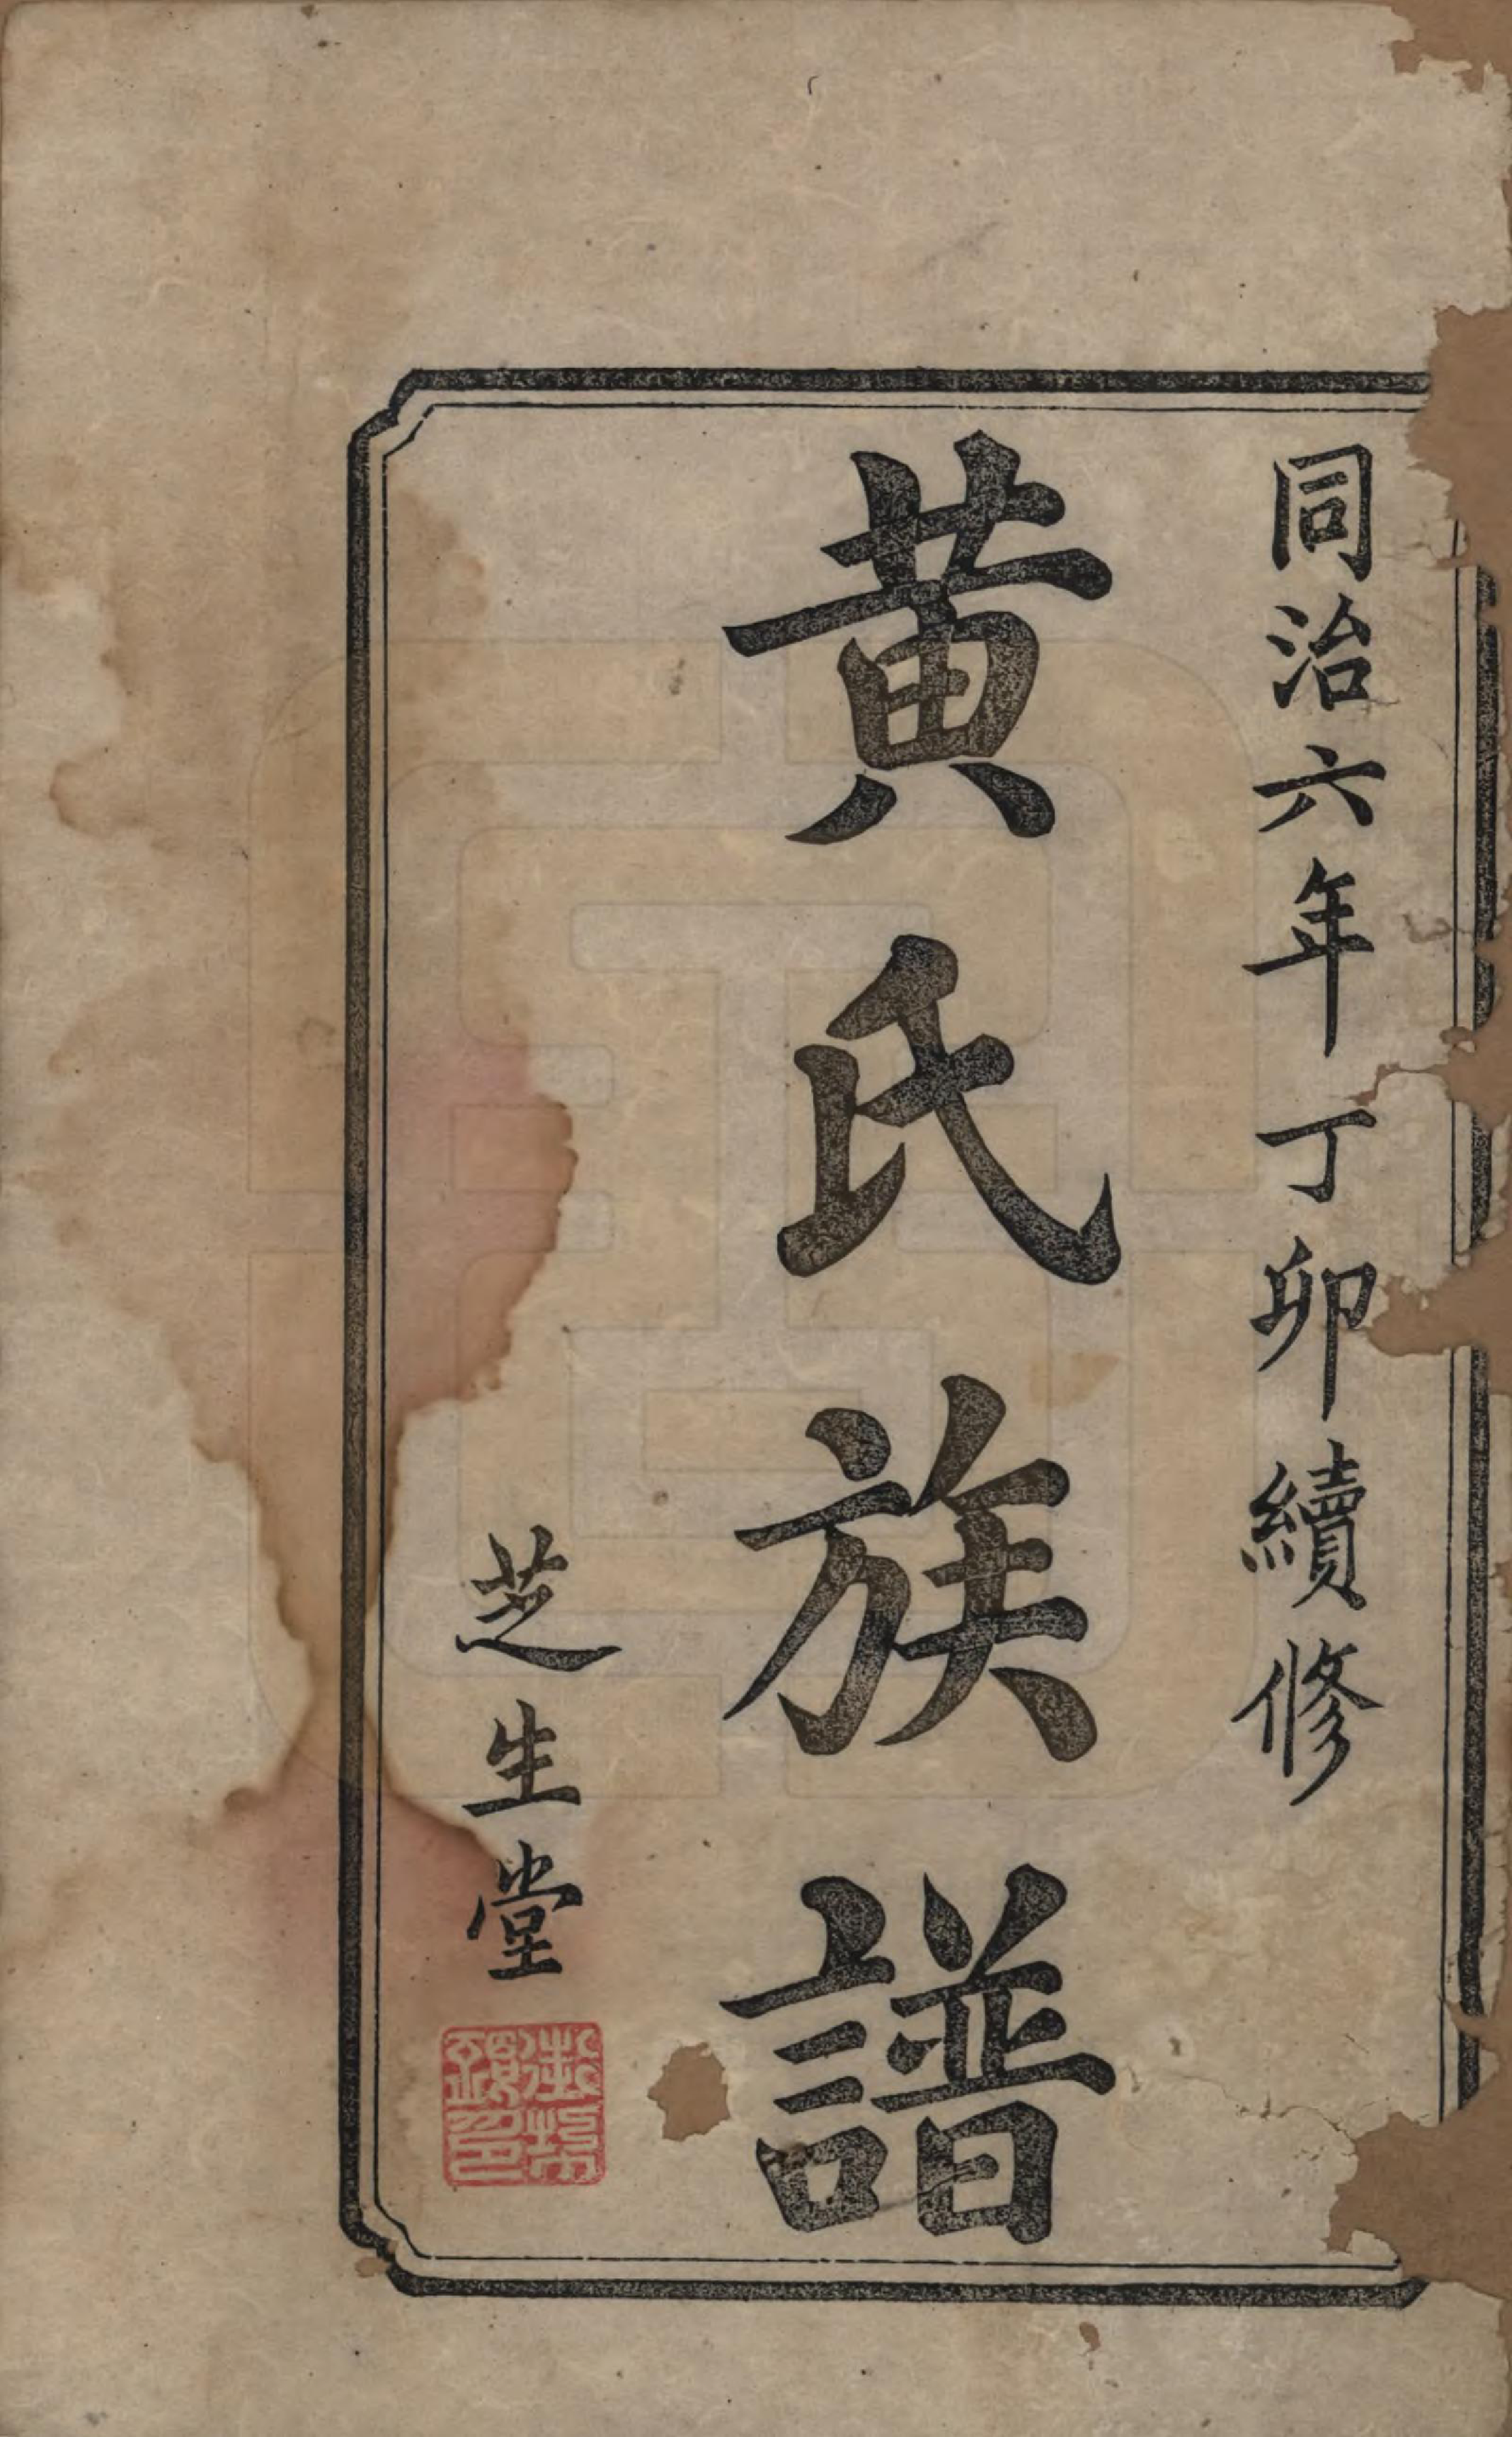 同治六年丁卯續修
黃氏族譜
芝生堂